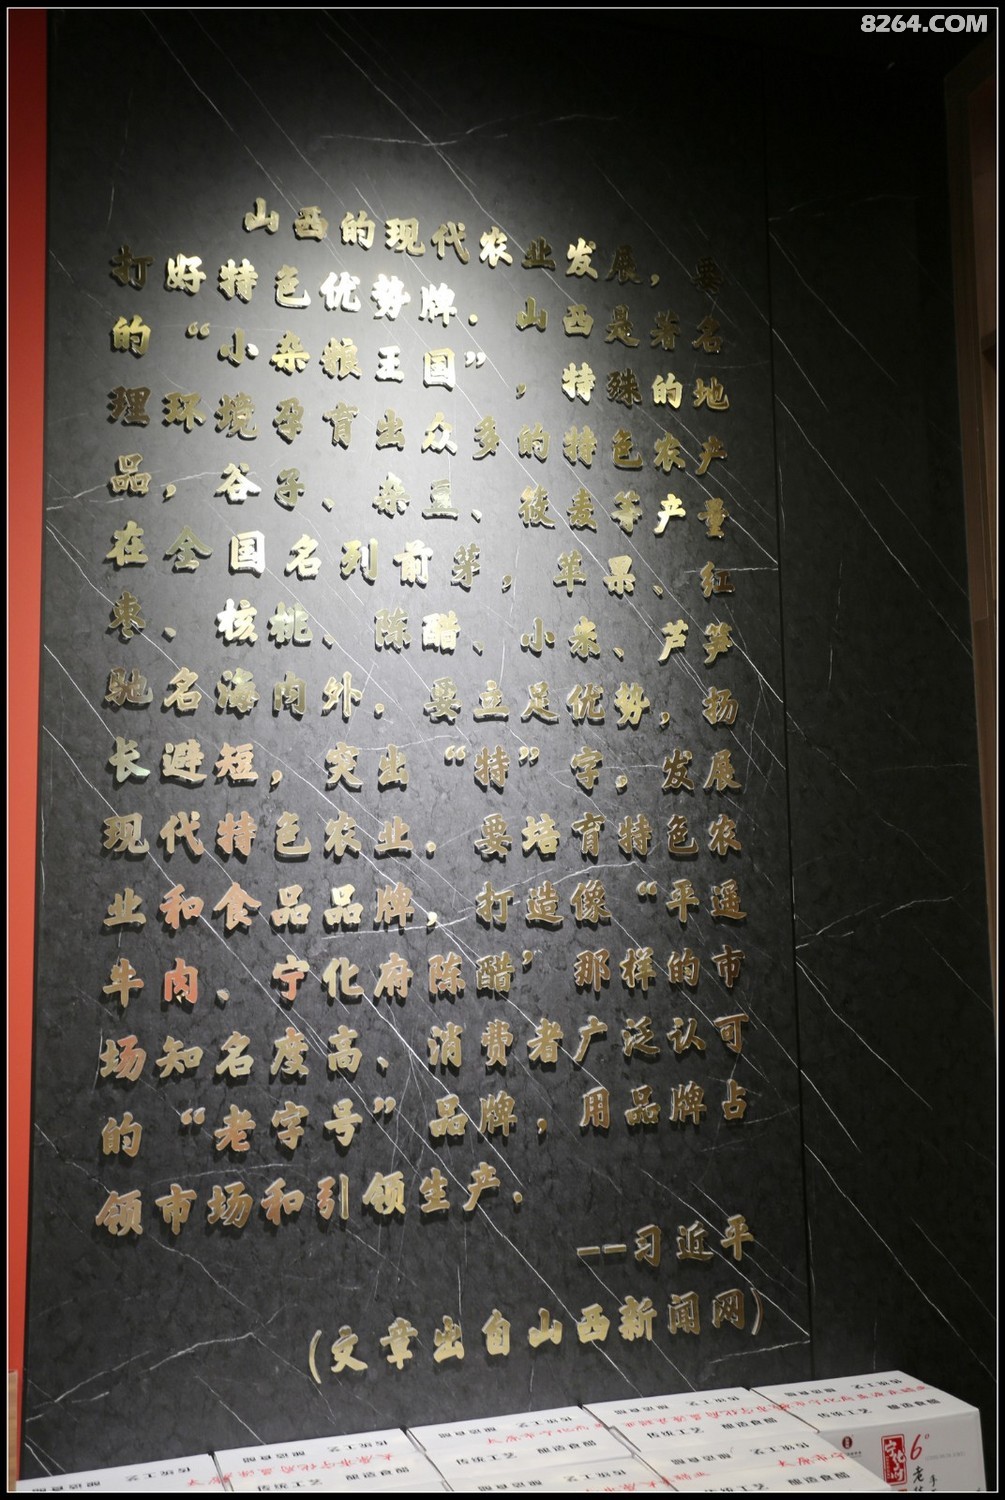 8264.COM
山西的现代农业发展，要
打好特色优势牌．山西是著名
的“小杂粮王国”，特殊的地
理环境孕育出众多的特色农产
品，谷子、杂豆、莜麦等产量
在全国名列前茅，苹果、红
枣、核桃、陈醋、小米、芦笋
驰名海内外．要立足优势，扬
长避短，突出“特”字，发展
现代特色农业．要培育特色农
业和食品品牌，打造像“平遥
牛肉、宁化府陈醋’那样的市
场知名度高、消费者广泛认可
的“老字号”品牌，用品牌占
领市场和引领生产．
--习近平
(文章出自山西新闻网)
传统工艺 酿造食醋
传统工艺 酿造食醋
传统工艺 酿造食醋
6°